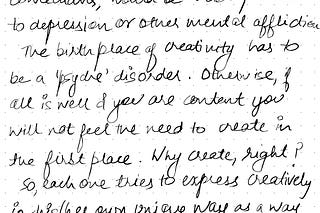 to depression or other mental affliction
The birthplace of creativity has to
be a 'psyche' disorder. Otherwise, if
all is well & you are content you
will not feel the need to create in
the first place. Why create, right?
So, each one tries to express creatively
in his/her own unique ways as a way